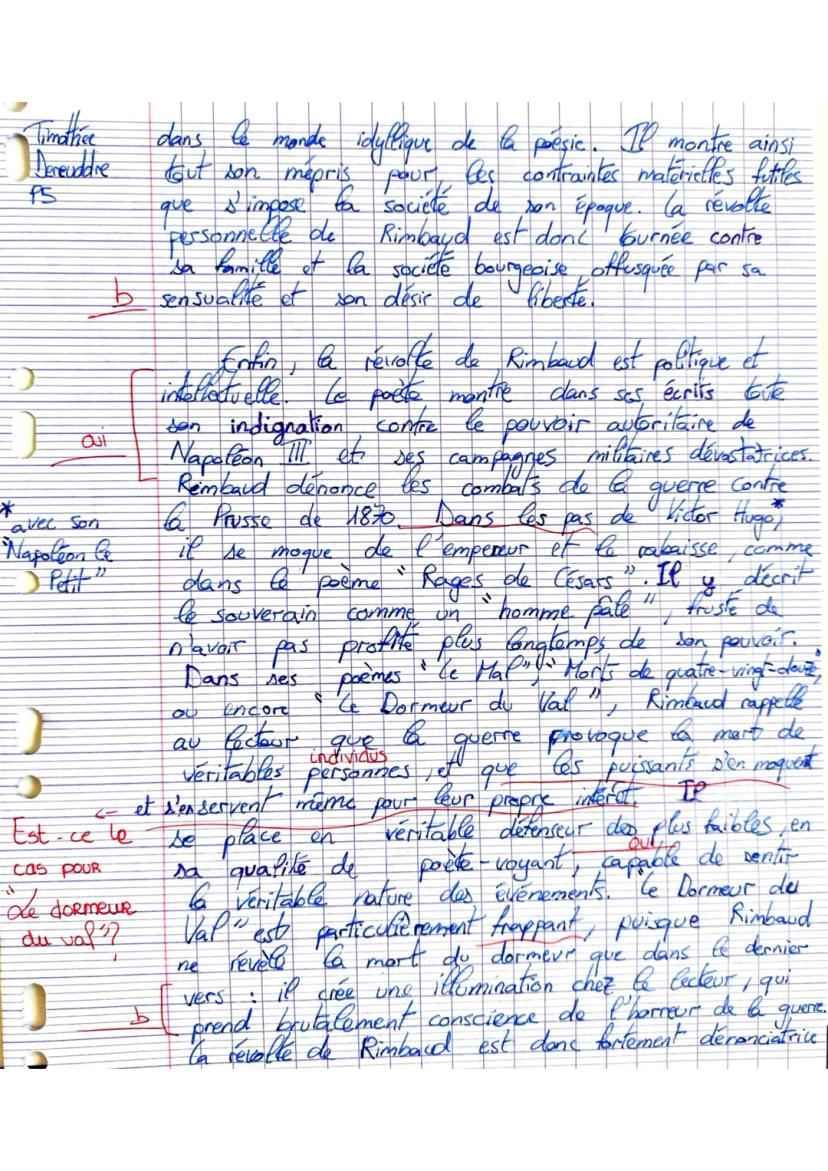 Timothée
Dereuddre
P5
dans le monde idyllique de la poésie. Il montre ainsi
tout son mépris pour les contraintes matérielles futiles
que s'impose la société de son époque. La révolte
personnelle de Rimbaud est donc tournée contre
sa famille et la société bourgeoise, offusquée par sa
b
sensualité et son désir de liberté.
Enfin, la révolte de Rimbaud est politique et
intellectuelle. Le poète montre dans ses écrits toute
son indignation contre le pouvoir autoritaire de
oui
Napoléon III et ses campagnes militaires dévastatrices.
Rimbaud dénonce les combats de la guerre contre
la Prusse de 1870. Dans les pas de Victor Hugo*,
* avec son
"Napoléon le
Petit"
il se moque de l'empereur et le rabaisse, comme
dans le poème "Rages de Césars". Il y décrit
le souverain comme un "homme pâle", frusté de
n'avoir pas profité plus longtemps de son pouvoir.
Dans ses poèmes "Le Mal", "Morts de quatre-vingt-douze",
ou encore "Le Dormeur du Val", Rimbaud rappelle
au lecteur que la guerre provoque la mort de
individus
véritables personnes, et que les puissants s'en moquent
et s'en servent même pour leur propre intérêt. Il
← Est-ce le
cas pour
"Le dormeur
du val"?
se place en véritable défenseur des plus faibles, en
oui
sa qualité de poète-voyant, capable de sentir
la véritable nature des événements. "Le Dormeur du
Val" est particulièrement frappant, puisque Rimbaud
ne révèle la mort du dormeur que dans le dernier
vers : il crée une illumination chez le lecteur, qui
b
prend brutalement conscience de l'horreur de la guerre.
La révolte de Rimbaud est donc fortement dénonciatrice